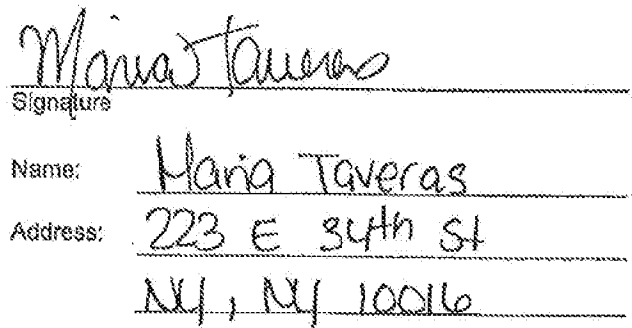 Maria Taveras
Signature
Name: Maria Taveras
Address: 223 E 34th St
NY, NY 10016